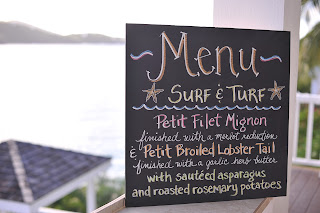 Menu
Surf & Turf
Petit Filet Mignon
finished with a merlot reduction
& Petit Broiled Lobster Tail
finished with a garlic herb butter
with sautéed asparagus
and roasted rosemary potatoes